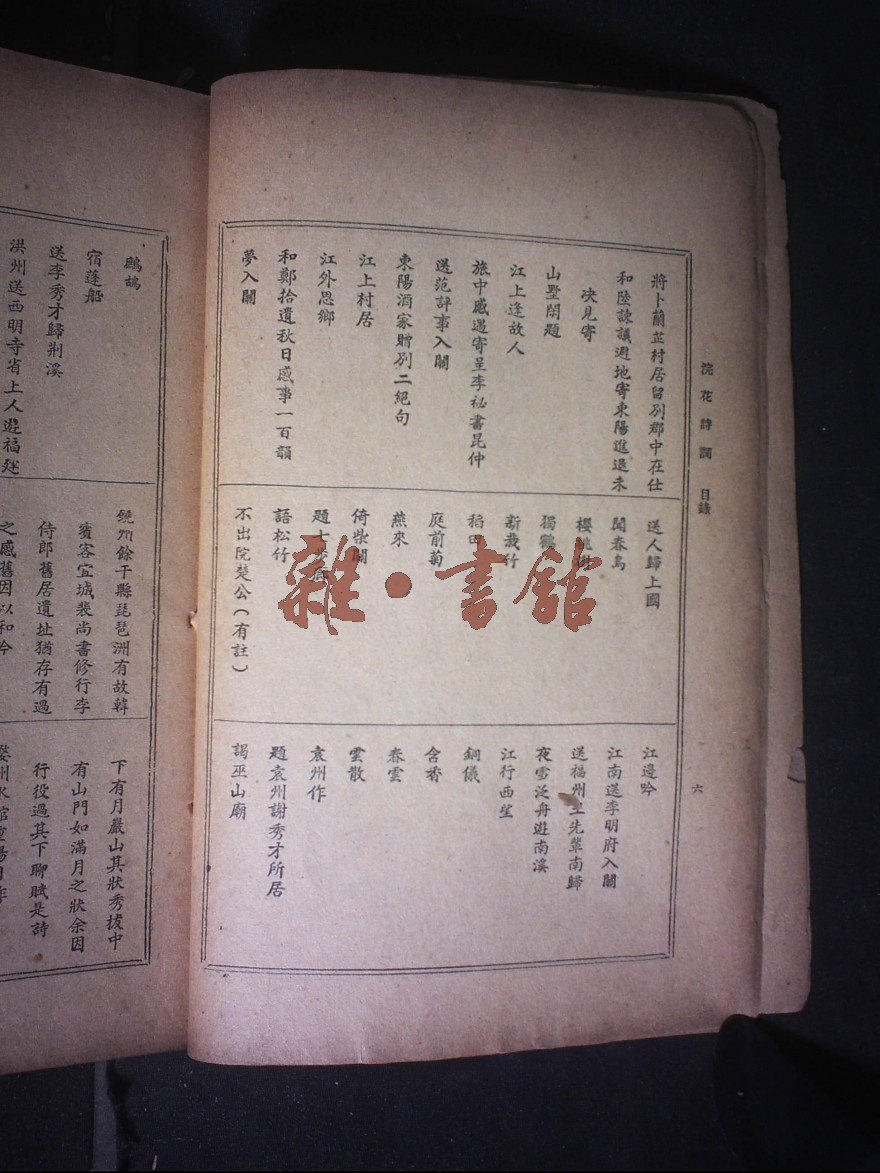 浣花詩詞 目錄
六
將卜蘭芷村居留別郡中在仕
和陸諫議避地寄東陽進退未
決見寄
山墅閒題
江上逢故人
旅中感遇寄呈李祕書昆仲
送范評事入關
東陽酒家贈別二絕句
江上村居
江外思鄉
和鄭拾遺秋日感事一百韻
夢入關
送人歸上國
聞春鳥
櫻桃樹
獨鶴
新栽竹
稻田
庭前菊
燕來
倚柴關
題七步廊
語松竹
不出院楚公(有註)
江邊吟
江南送李明府入關
送福州王先輩南歸
夜雪泛舟遊南溪
江行西望
銅儀
含香
春雲
雲散
袁州作
題袁州謝秀才所居
謁巫山廟
鷓鴣
宿蓬船
送李秀才歸荆溪
洪州送西明寺省上人遊福建
饒州餘干縣琵琶洲有故韓
賓客宣城裴尚書修行李
侍郎舊居遺址猶存有過
之感舊因以和吟
下有月巖山其狀秀拔中
有山門如滿月之狀余因
行役過其下聊賦是詩
雜·書館